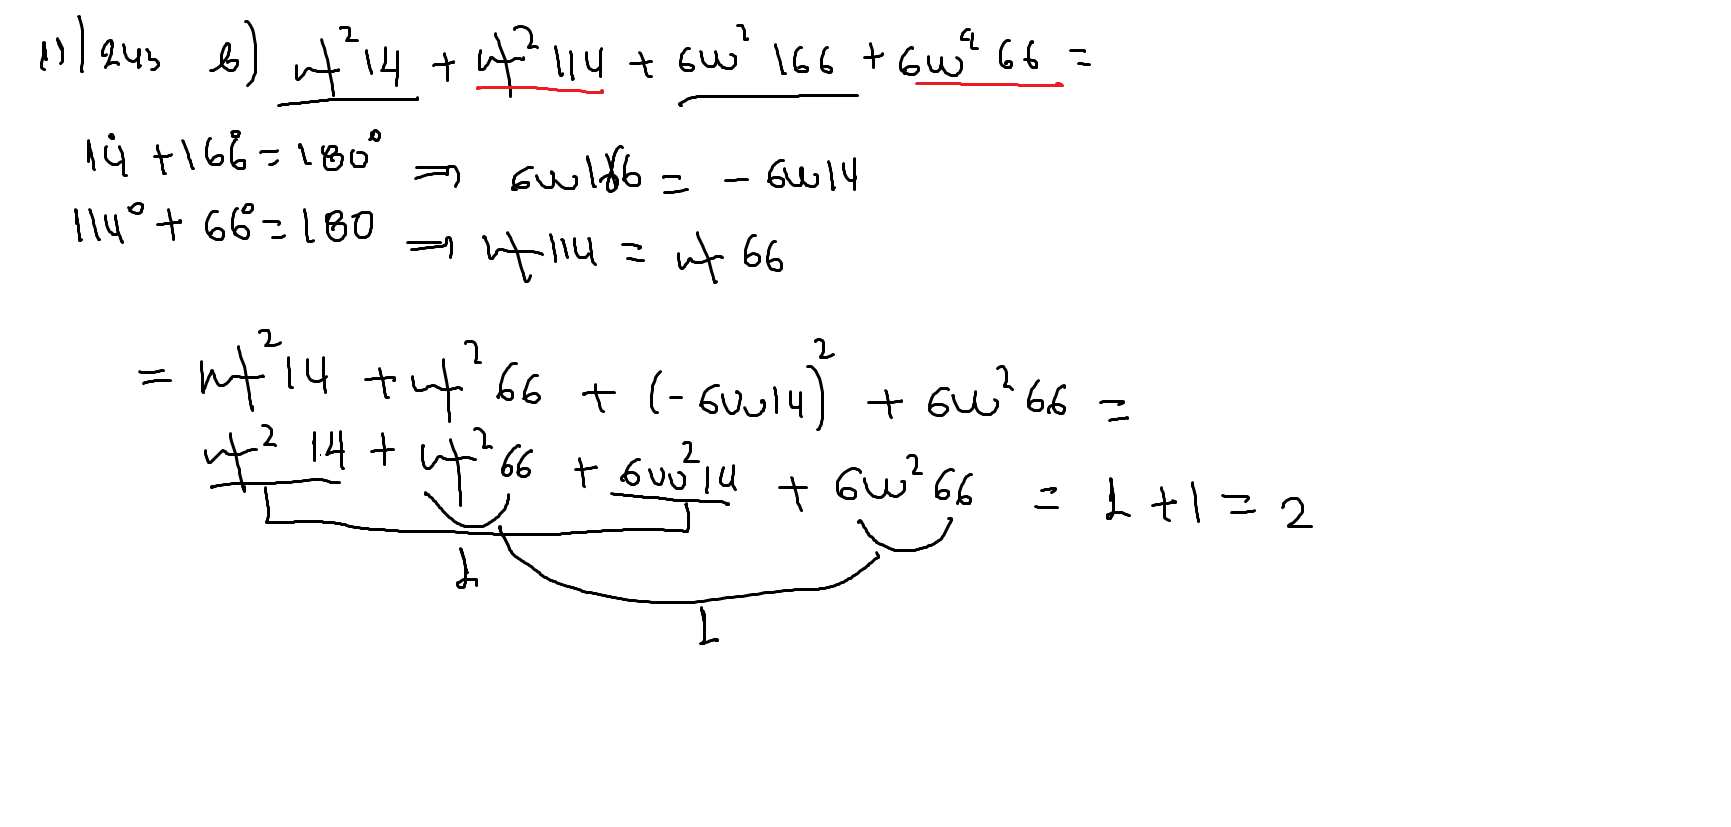 11| 243 β) ημ²14 + ημ²114 + συν²166 + συν²66 =
14° + 166° = 180° ⇒ συν166 = - συν14
114° + 66° = 180 ⇒ ημ114 = ημ 66
= ημ²14 + ημ²66 + (-συν14)² + συν²66 =
ημ² 14 + ημ²66 + συν²14 + συν²66 = 1 + 1 = 2
1
1